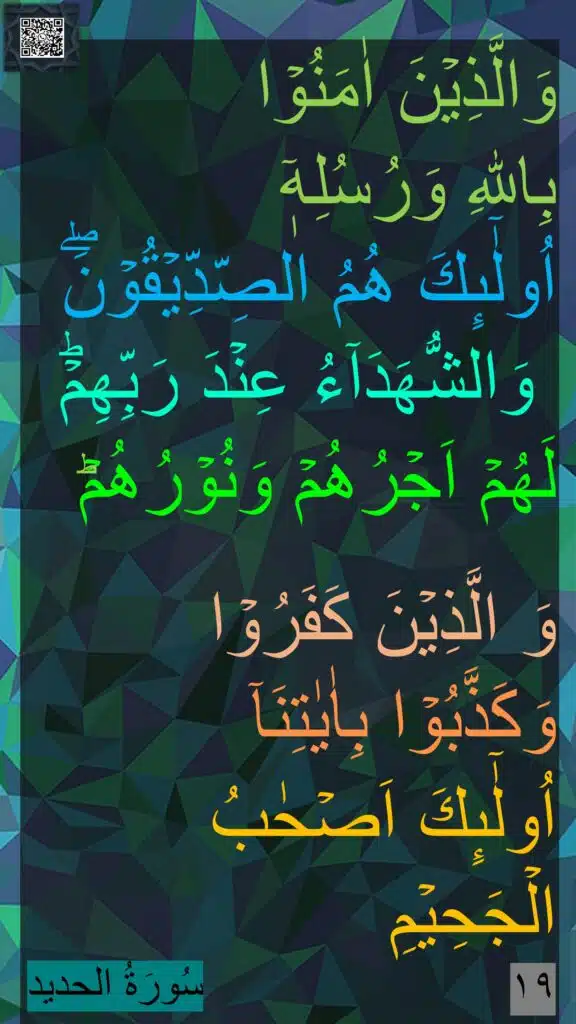 وَالَّذِيۡنَ اٰمَنُوۡا
بِاللّٰهِ وَرُسُلِهٖۤ
اُولٰٓٮِٕكَ هُمُ الصِّدِّيۡقُوۡنَ ۖ
وَالشُّهَدَآءُ عِنۡدَ رَبِّهِمۡؕ
لَهُمۡ اَجۡرُهُمۡ وَنُوۡرُهُمۡؕ
وَ الَّذِيۡنَ كَفَرُوۡا
وَكَذَّبُوۡا بِاٰيٰتِنَاۤ
اُولٰٓٮِٕكَ اَصۡحٰبُ
الۡجَحِيۡمِ
سُورَةُ الحديد
١٩